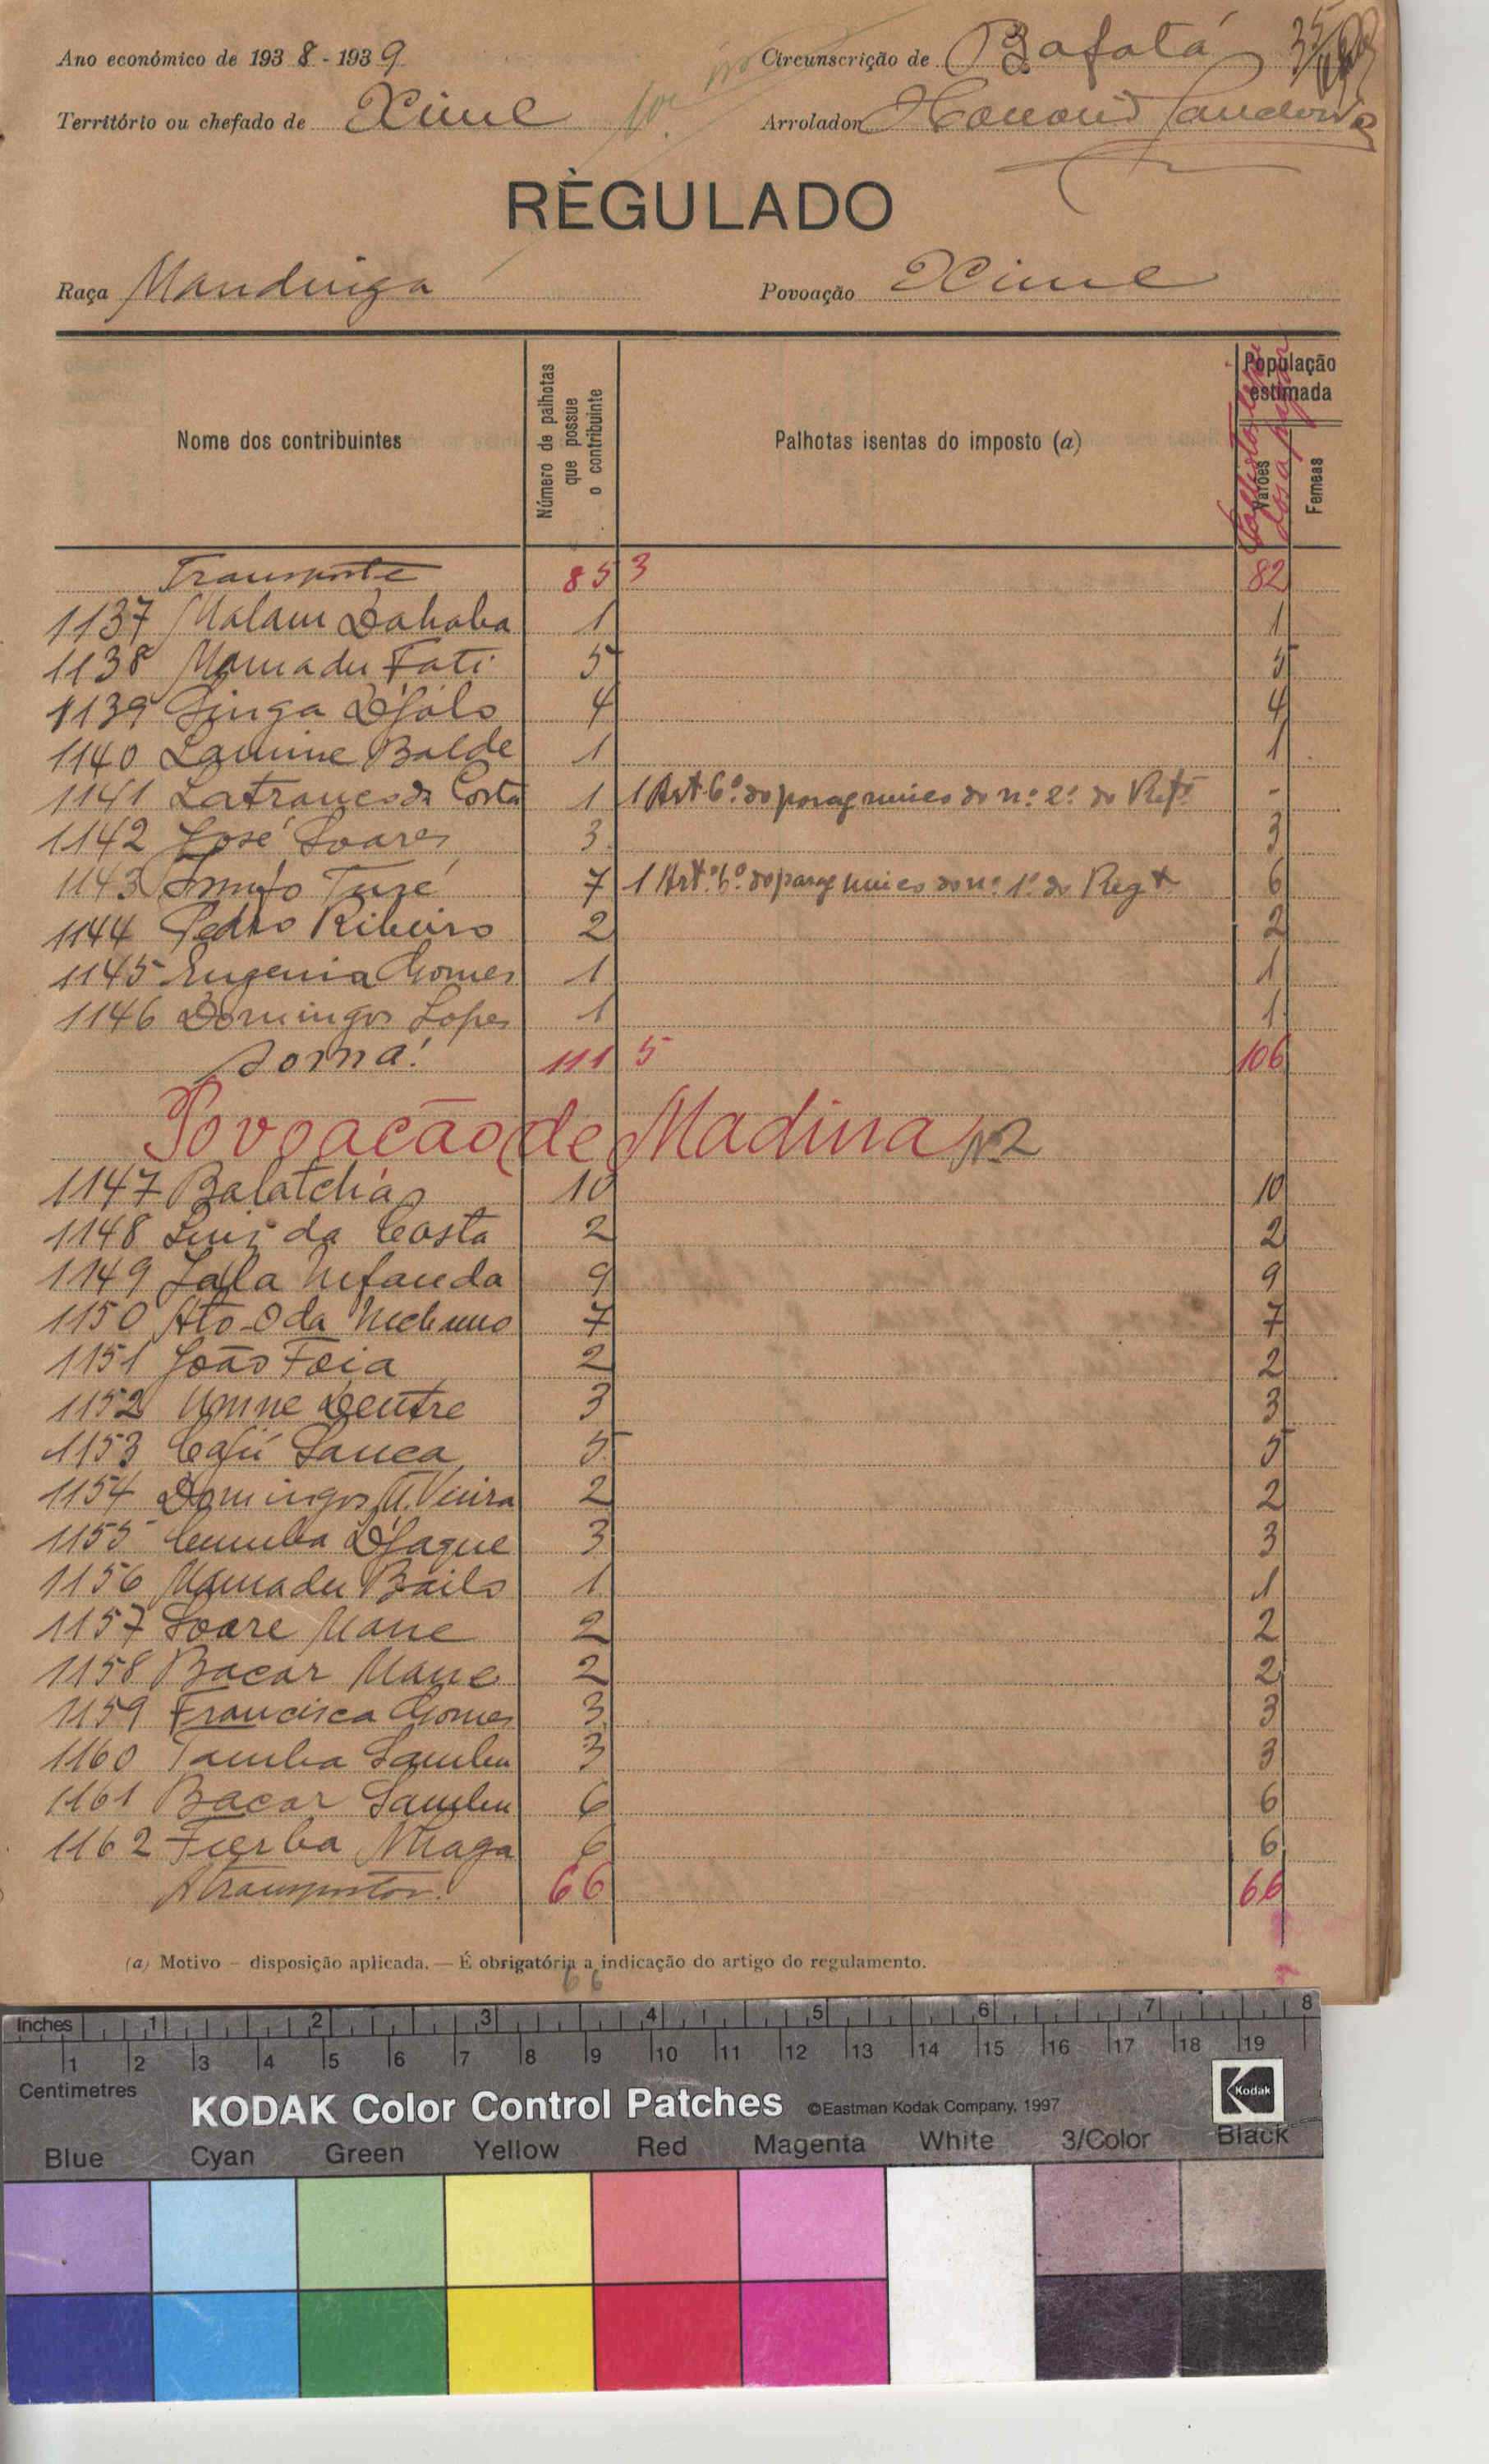 Ano económico de 1938-1939
Circunscrição de Bafatá
Território ou chefado de Xime
Arrolador
RÈGULADO
Raça Mandinga
Povoação Xime
Nome dos contribuintes
Número de palhotas que possue o contribuinte
Palhotas isentas do imposto (a)
População estimada
Varões
Femeas
Transporte 85 3 82
1137 Malam Dahaba 1 1
1138 Mamadu Fati 5 5
1139 Singa Djaló 4 4
1140 Lamine Balde 1 1
1141 da Costa 1 1 Art. 6º do parag unico do nº 2º do -
1142 José Soares 3 3
1143 Turé 7 1 Art. 6º do parag unico do nº 1º do Regto 6
1144 Pedro Ribeiro 2 2
1145 Eugenia Gomes 1 1
1146 Domingos Lopes 1 1
Soma! 111 5 106
Povoação de Madina Nº2
1147 Balatchá 10 10
1148 Luiz da Costa 2 2
1149 Lalla Nfanda 9 9
1150 7 7
1151 João Foia 2 2
1152 3 3
1153 Sanca 5 5
1154 Domingos Vieira 2 2
1155 Cumba Djaque 3 3
1156 Mamadu Bailo 1 1
1157 Soare Mane 2 2
1158 Bacar Mane 2 2
1159 Francisca Gomes 3 3
1160 Tamba Sambu 3 3
1161 Bacar Sambu 6 6
1162 Fierba Nhaga 6 6
A transportar 66 66
(a) Motivo – disposição aplicada. — É obrigatória a indicação do artigo do regulamento.
66
Inches 1 2 3 4 5 6 7 8
1 2 3 4 5 6 7 8 9 10 11 12 13 14 15 16 17 18 19
Centimetres
KODAK Color Control Patches ©Eastman Kodak Company, 1997 Kodak
Blue Cyan Green Yellow Red Magenta White 3/Color Black